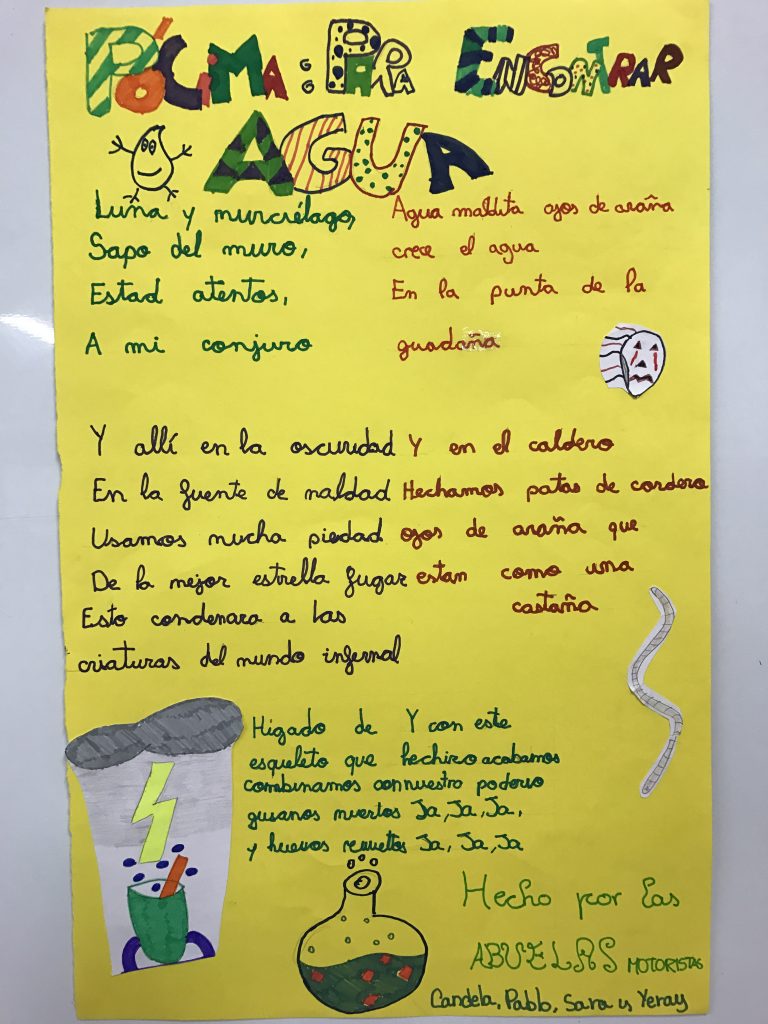 PÓCIMA: PARA ENCONTRAR
AGUA
Luna y murciélago,
Sapo del muro,
Estad atentos,
A mi conjuro
Agua maldita ojos de araña
crece el agua
En la punta de la
guadaña
Y allí en la oscuridad
En la fuente de maldad
Usamos mucha piedad
De la mejor estrella fugar
Esto condenara a las
criaturas del mundo infernal
Y en el caldero
Hechamos patas de cordero
ojos de araña que
estan como una
castaña
Higado de Y con este
esqueleto que hechizo acabamos
combinamos con nuestro poderio
gusanos muertos Ja, Ja, Ja,
y huevos revueltos Ja, Ja, Ja
Hecho por las
ABUELAS MOTORISTAS
Candela, Pablo, Sara y Yeray